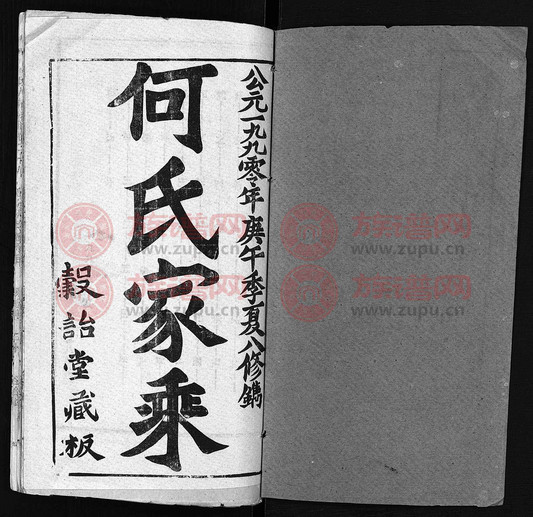 公元一九九零年庚午季夏八修鐫
何氏家乘
穀詒堂藏板
族譜网
www.zupu.cn
族譜网
www.zupu.cn
族譜网
www.zupu.cn
族譜网
www.zupu.cn